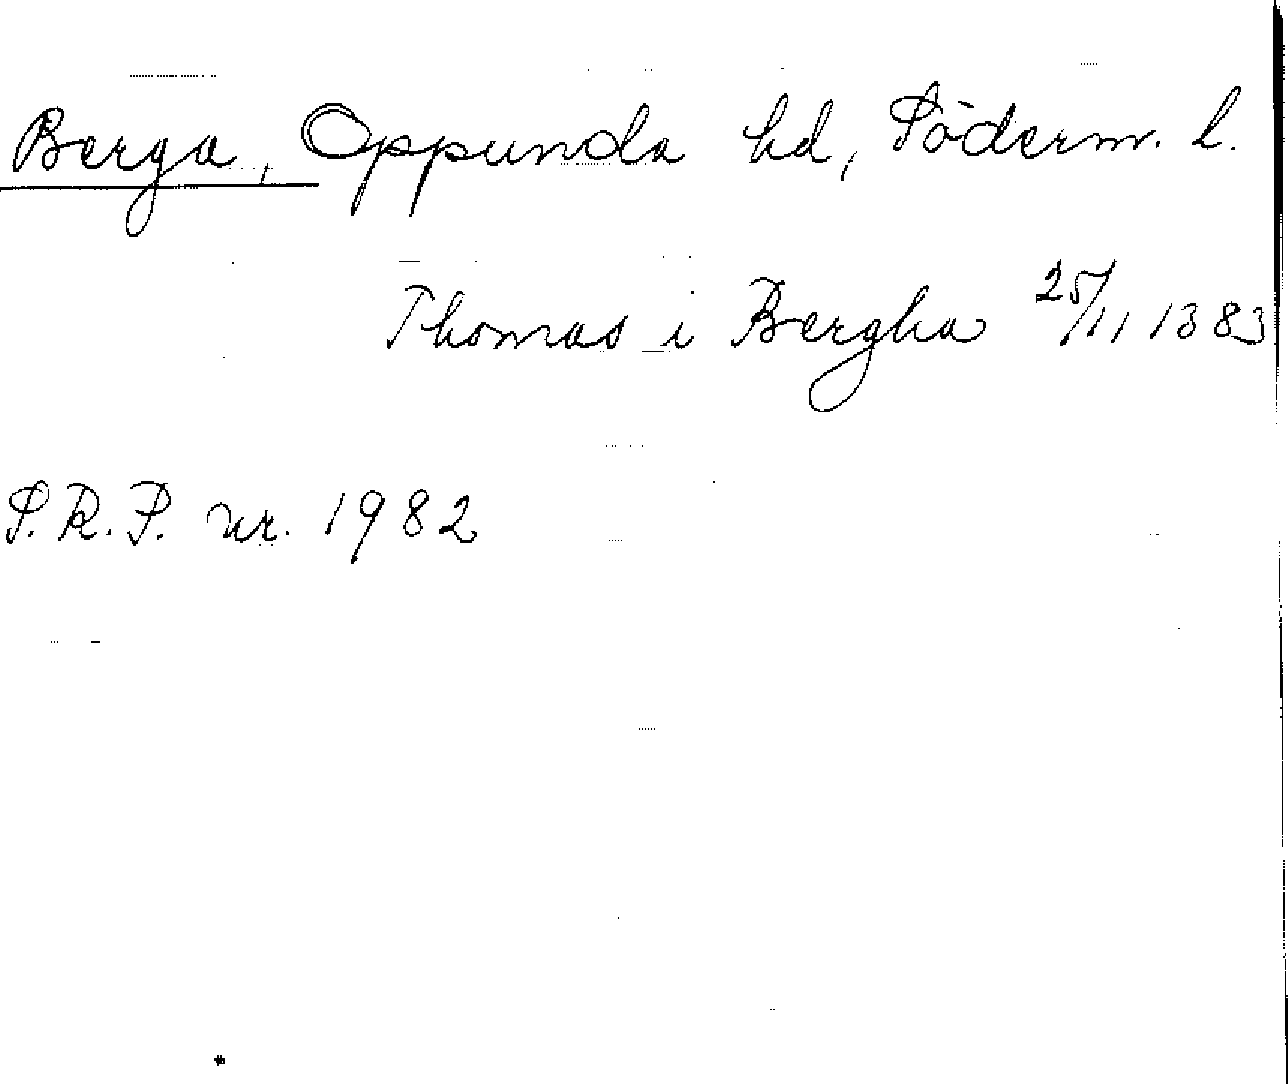 Berga, Oppunda hd, Söderm. l.
Thomas i Bergha 25/11 1383
S.R.P. nr. 1982